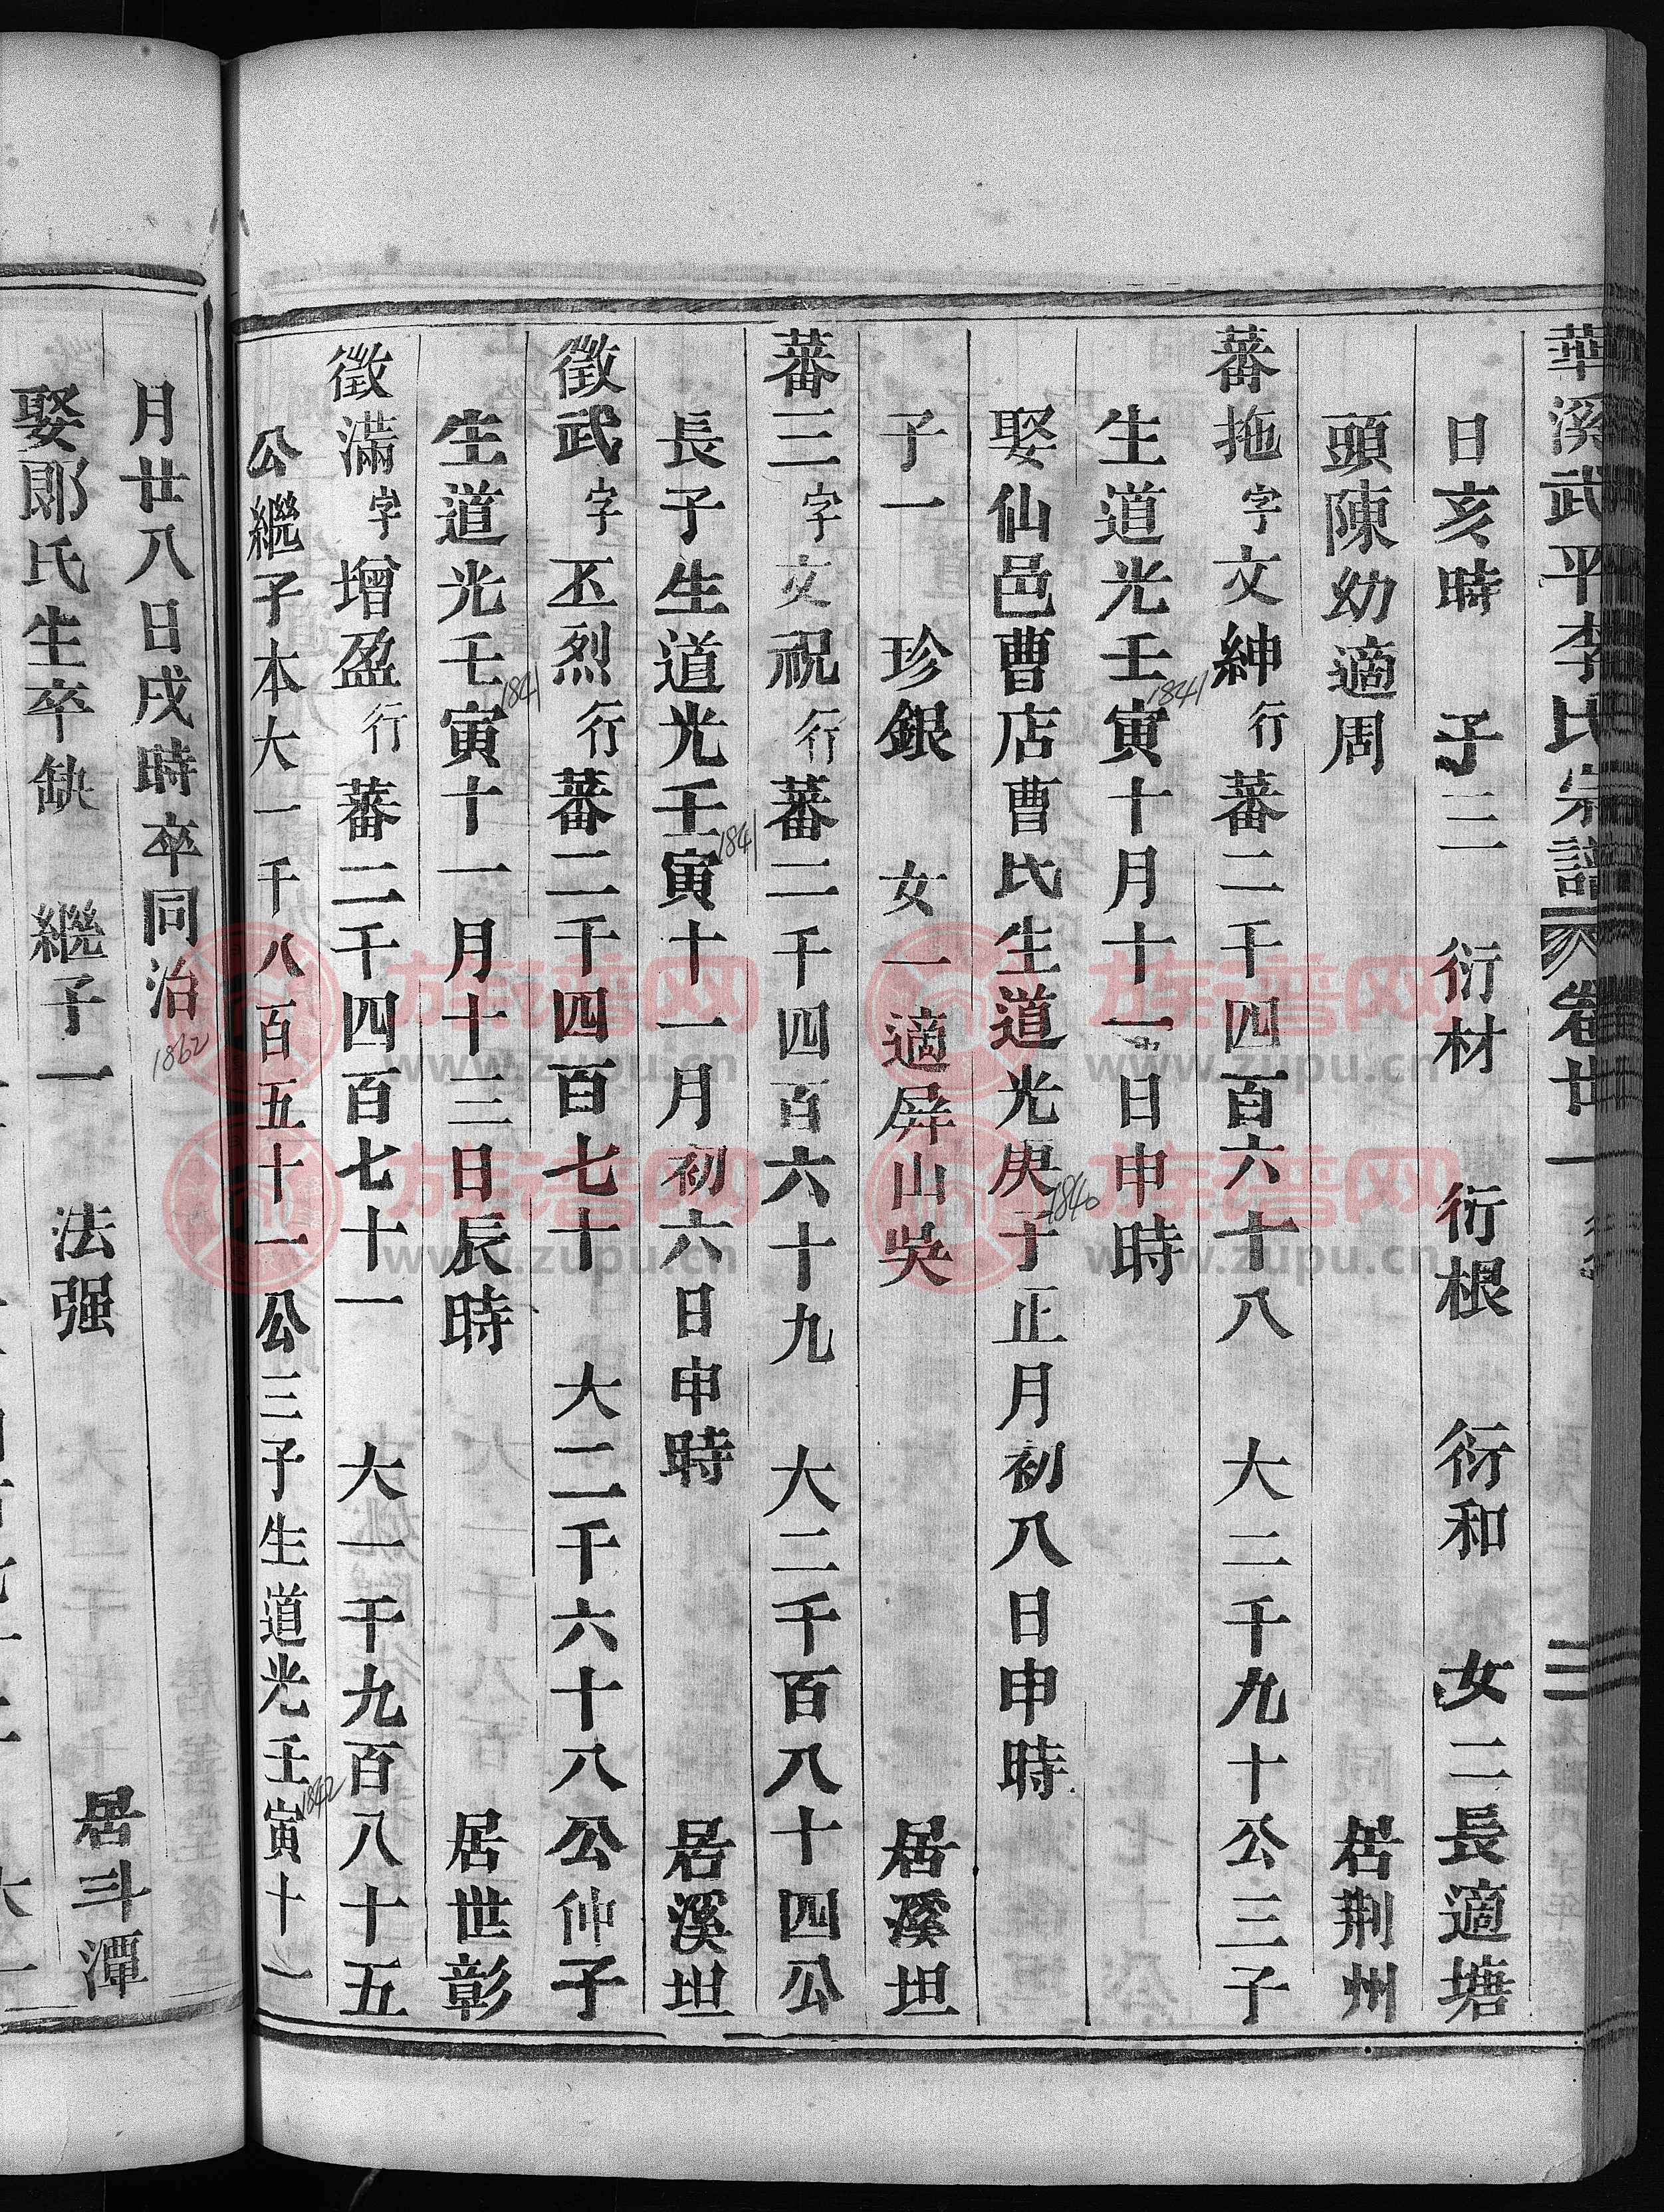 華溪武平李氏宗譜 卷廿一 三
日亥時 子三 衍材 衍根 衍和 女二長適塘
頭陳幼適周 居荆州
蕃拖字文紳行蕃二千四百六十八 大二千九十公三子
生道光壬寅十月十一日申時
1841
娶仙邑曹店曹氏生道光庚子正月初八日申時
1840
子一 珍銀 女一適屏山吳 居溪坦
蕃三字文祝行蕃二千四百六十九 大二千百八十四公
長子生道光壬寅十一月初六日申時 居溪坦
1841
徵武字丕烈行蕃二千四百七十 大二千六十八公仲子
生道光壬寅十一月十三日辰時 居世彰
1841
徵滿字增盈行蕃二千四百七十一 大一千九百八十五
公繼子本大一千八百五十一公三子生道光壬寅十一
1842
月廿八日戌時卒同治
1862
娶郞氏生卒缺 繼子一 法强 居斗潭
族谱网
www.zupu.cn
族谱网
www.zupu.cn
族谱网
www.zupu.cn
族谱网
www.zupu.cn